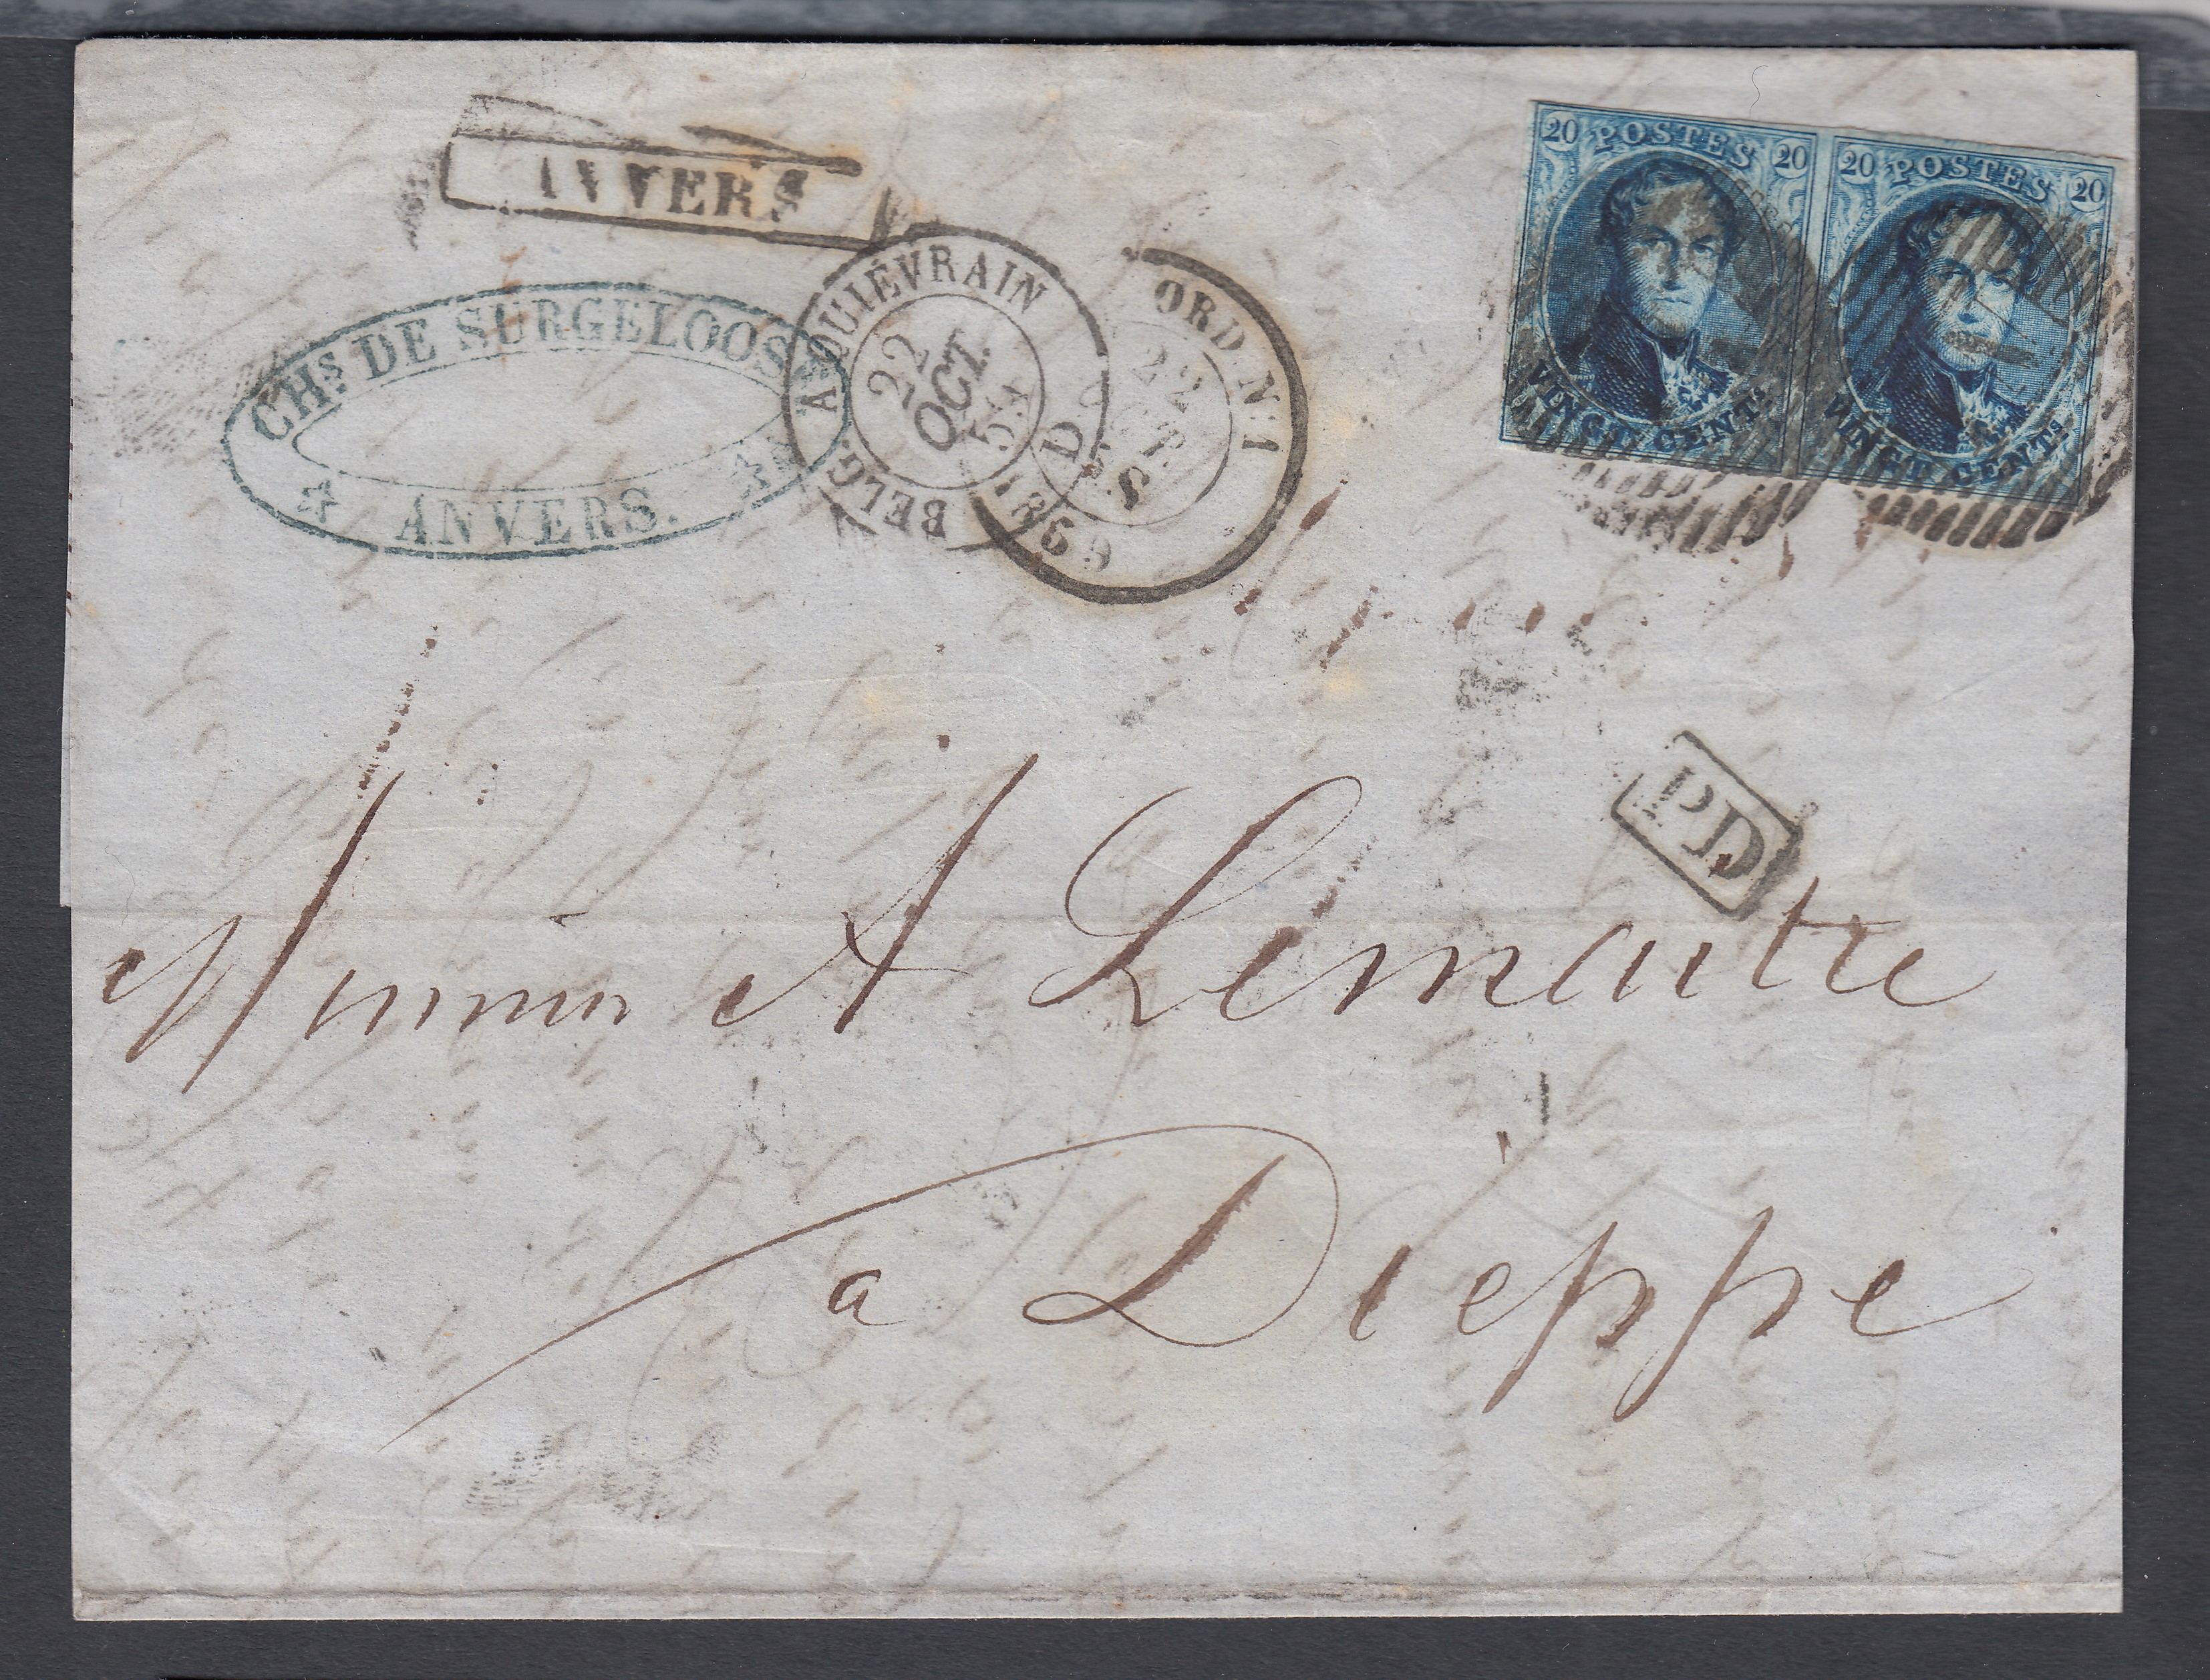 ANVERS
CHS. DE SURGELOOS
ANVERS.
BELG. A QUIÉVRAIN
22
OCT.
59
ORD. N°1
22
S
1859
20 POSTES 20
VINGT CENTS.
20 POSTES 20
VINGT CENTS.
PD
A Lemaitre
a Dieppe